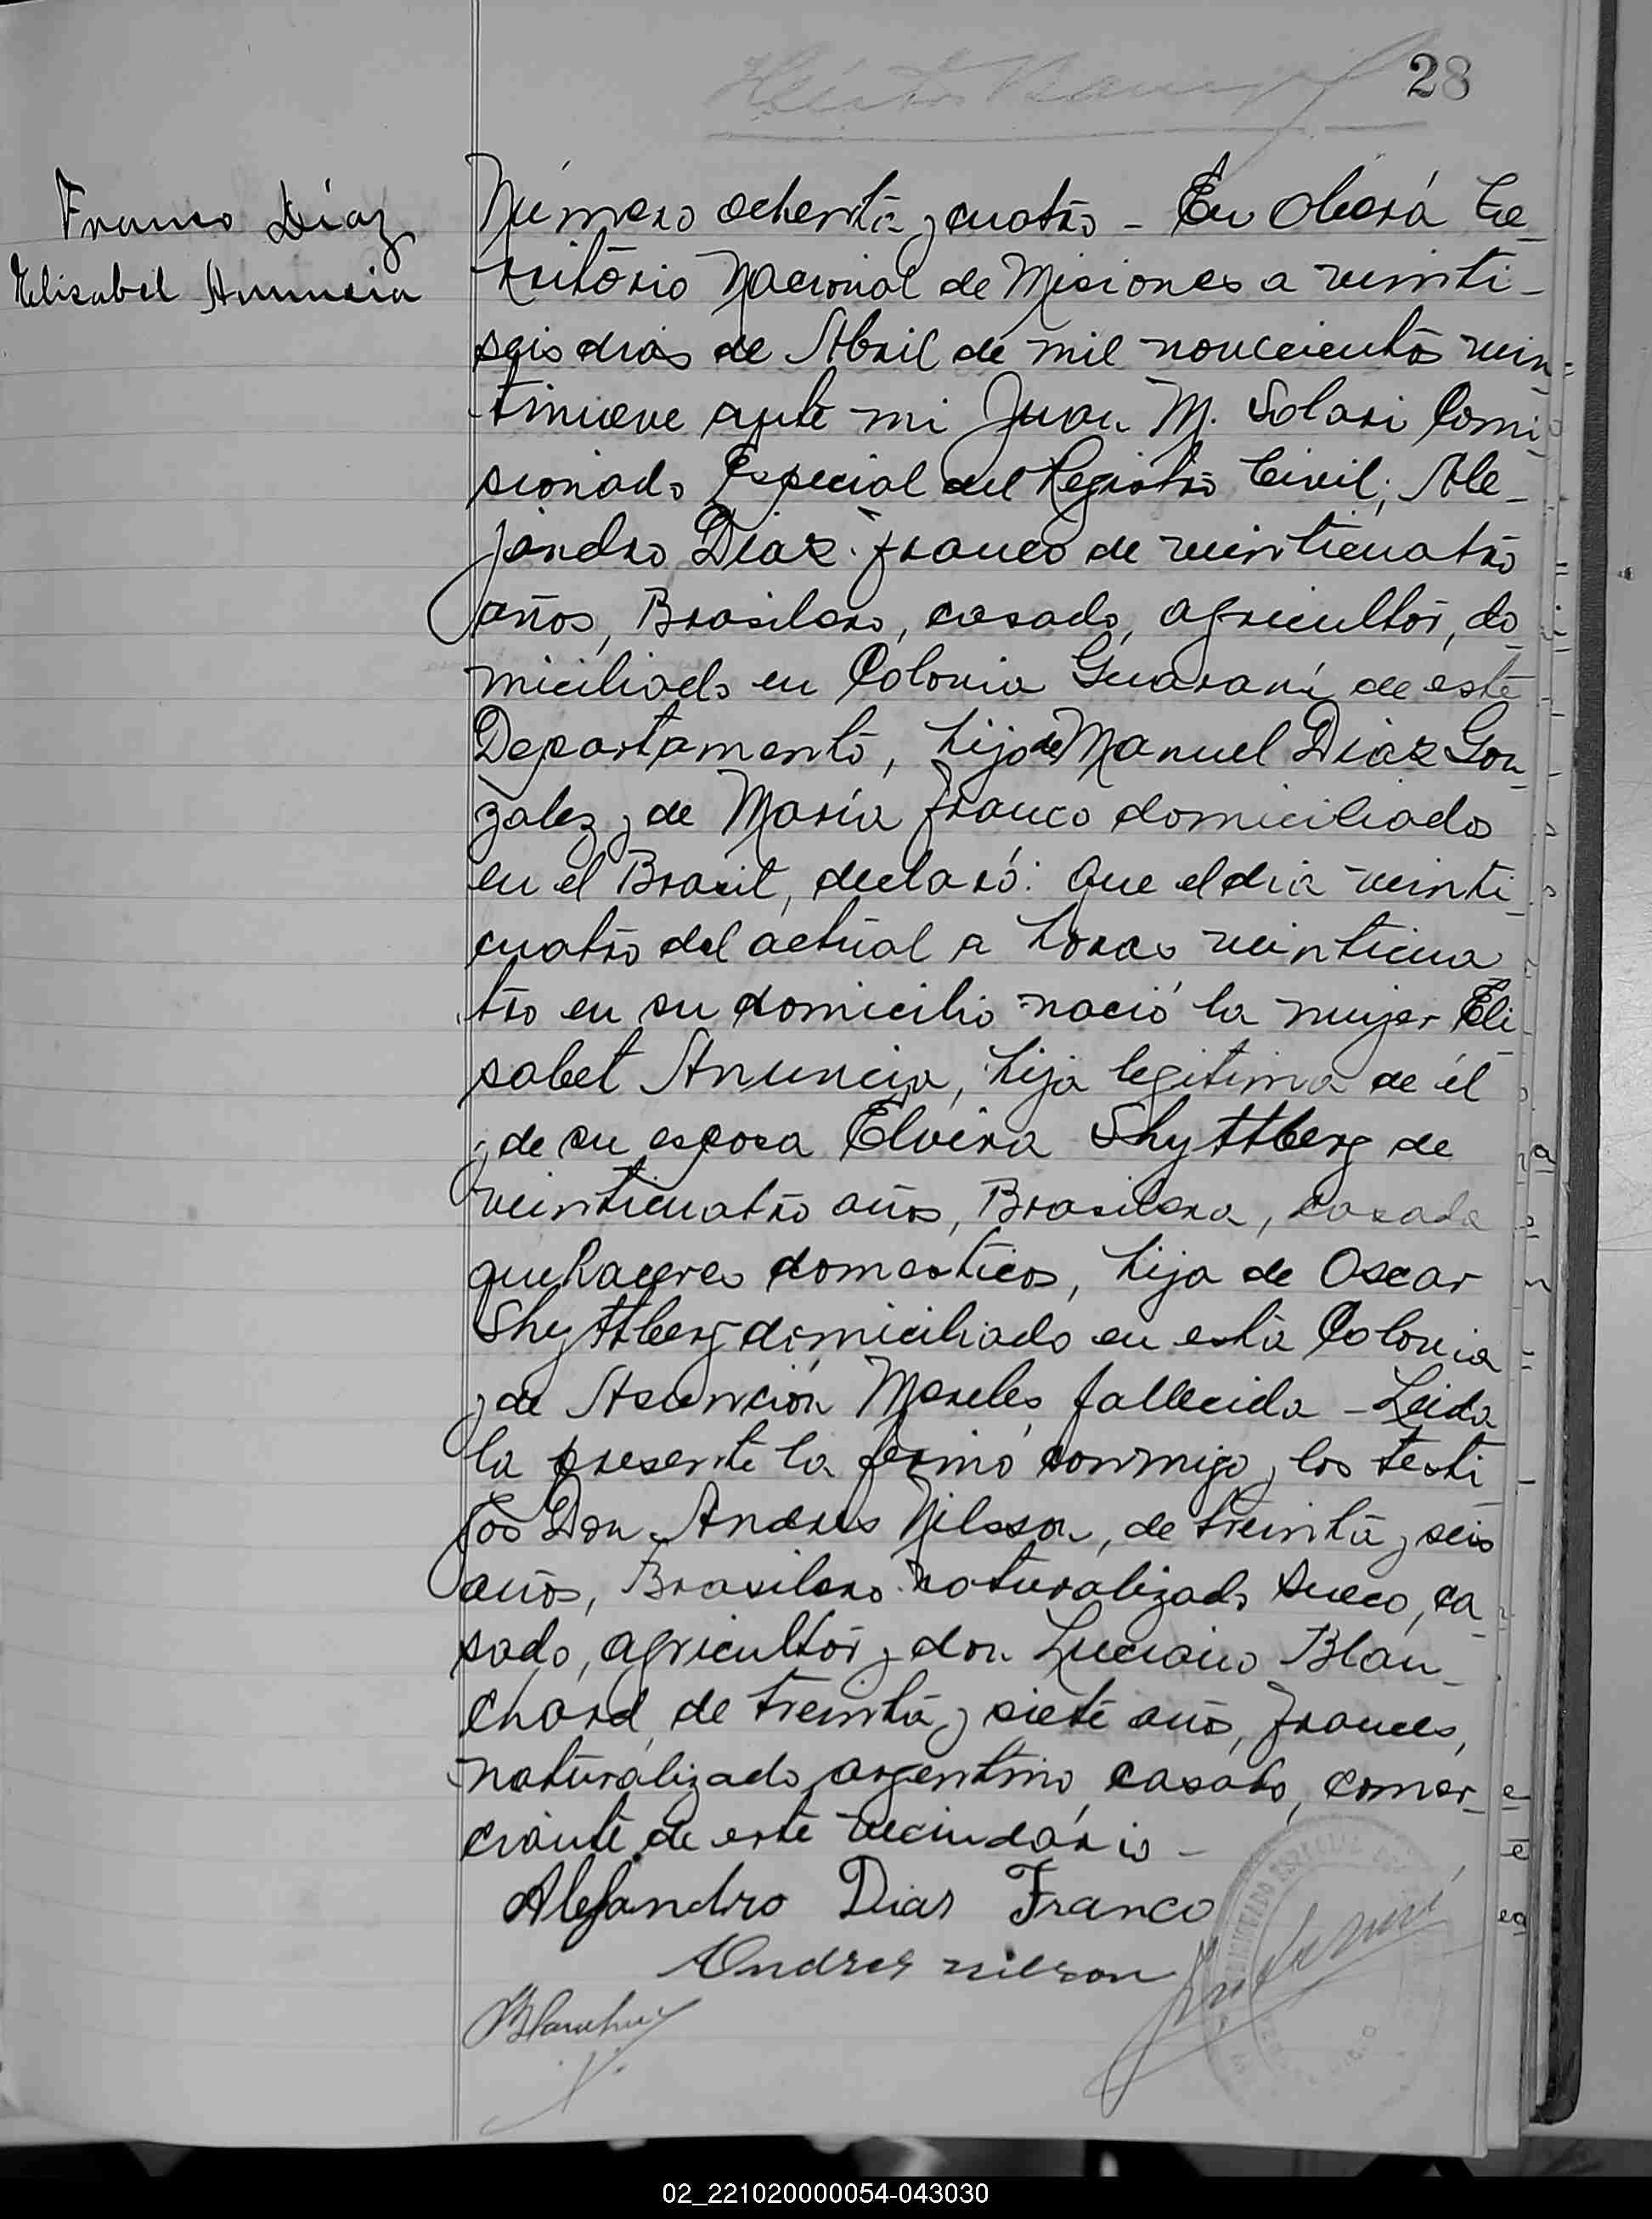 28
Franco Díaz
Elisabel Anuncia
Número ochenta y cuatro - En Oberá Te-
rritorio Nacional de Misiones a veinti-
seis dias de Abril de mil novecientos vein-
tinueve ante mi Juan M. Solari Comi-
sionado Especial del Registro Civil; Ale-
jandro Diaz Franco de veinticuatro
años, Brasilero, casado, agricultor, do-
miciliado en Colonia Guaraní de este
Departamento, hijo de Manuel Diaz Gon-
zalez y de María Franco domiciliados
en el Brasil, declaró: Que el dia veinti-
cuatro del actual a horas veinticua
tro en su domicilio nació la mujer Eli-
sabet Anuncia, hija legitima de él
y de su esposa Elvira Shyttberg de
veinticuatro años, Brasilera, casada
quehaceres domesticos, hija de Oscar
Shyttberg domiciliado en esta Colonia
y de Asunción fallecida - Leida
la presente la firmó conmigo y los testi
gos Don Andres Nilsson, de treinta y seis
años, Brasilero naturalizado sueco, ca-
sado, agricultor y don Luciano Blan-
chard, de treinta y siete años, frances,
naturalizado argentino, casado, comer-
ciante de este vecindario -
Alejandro Dias Franco
Andres nilson
02_221020000054-043030